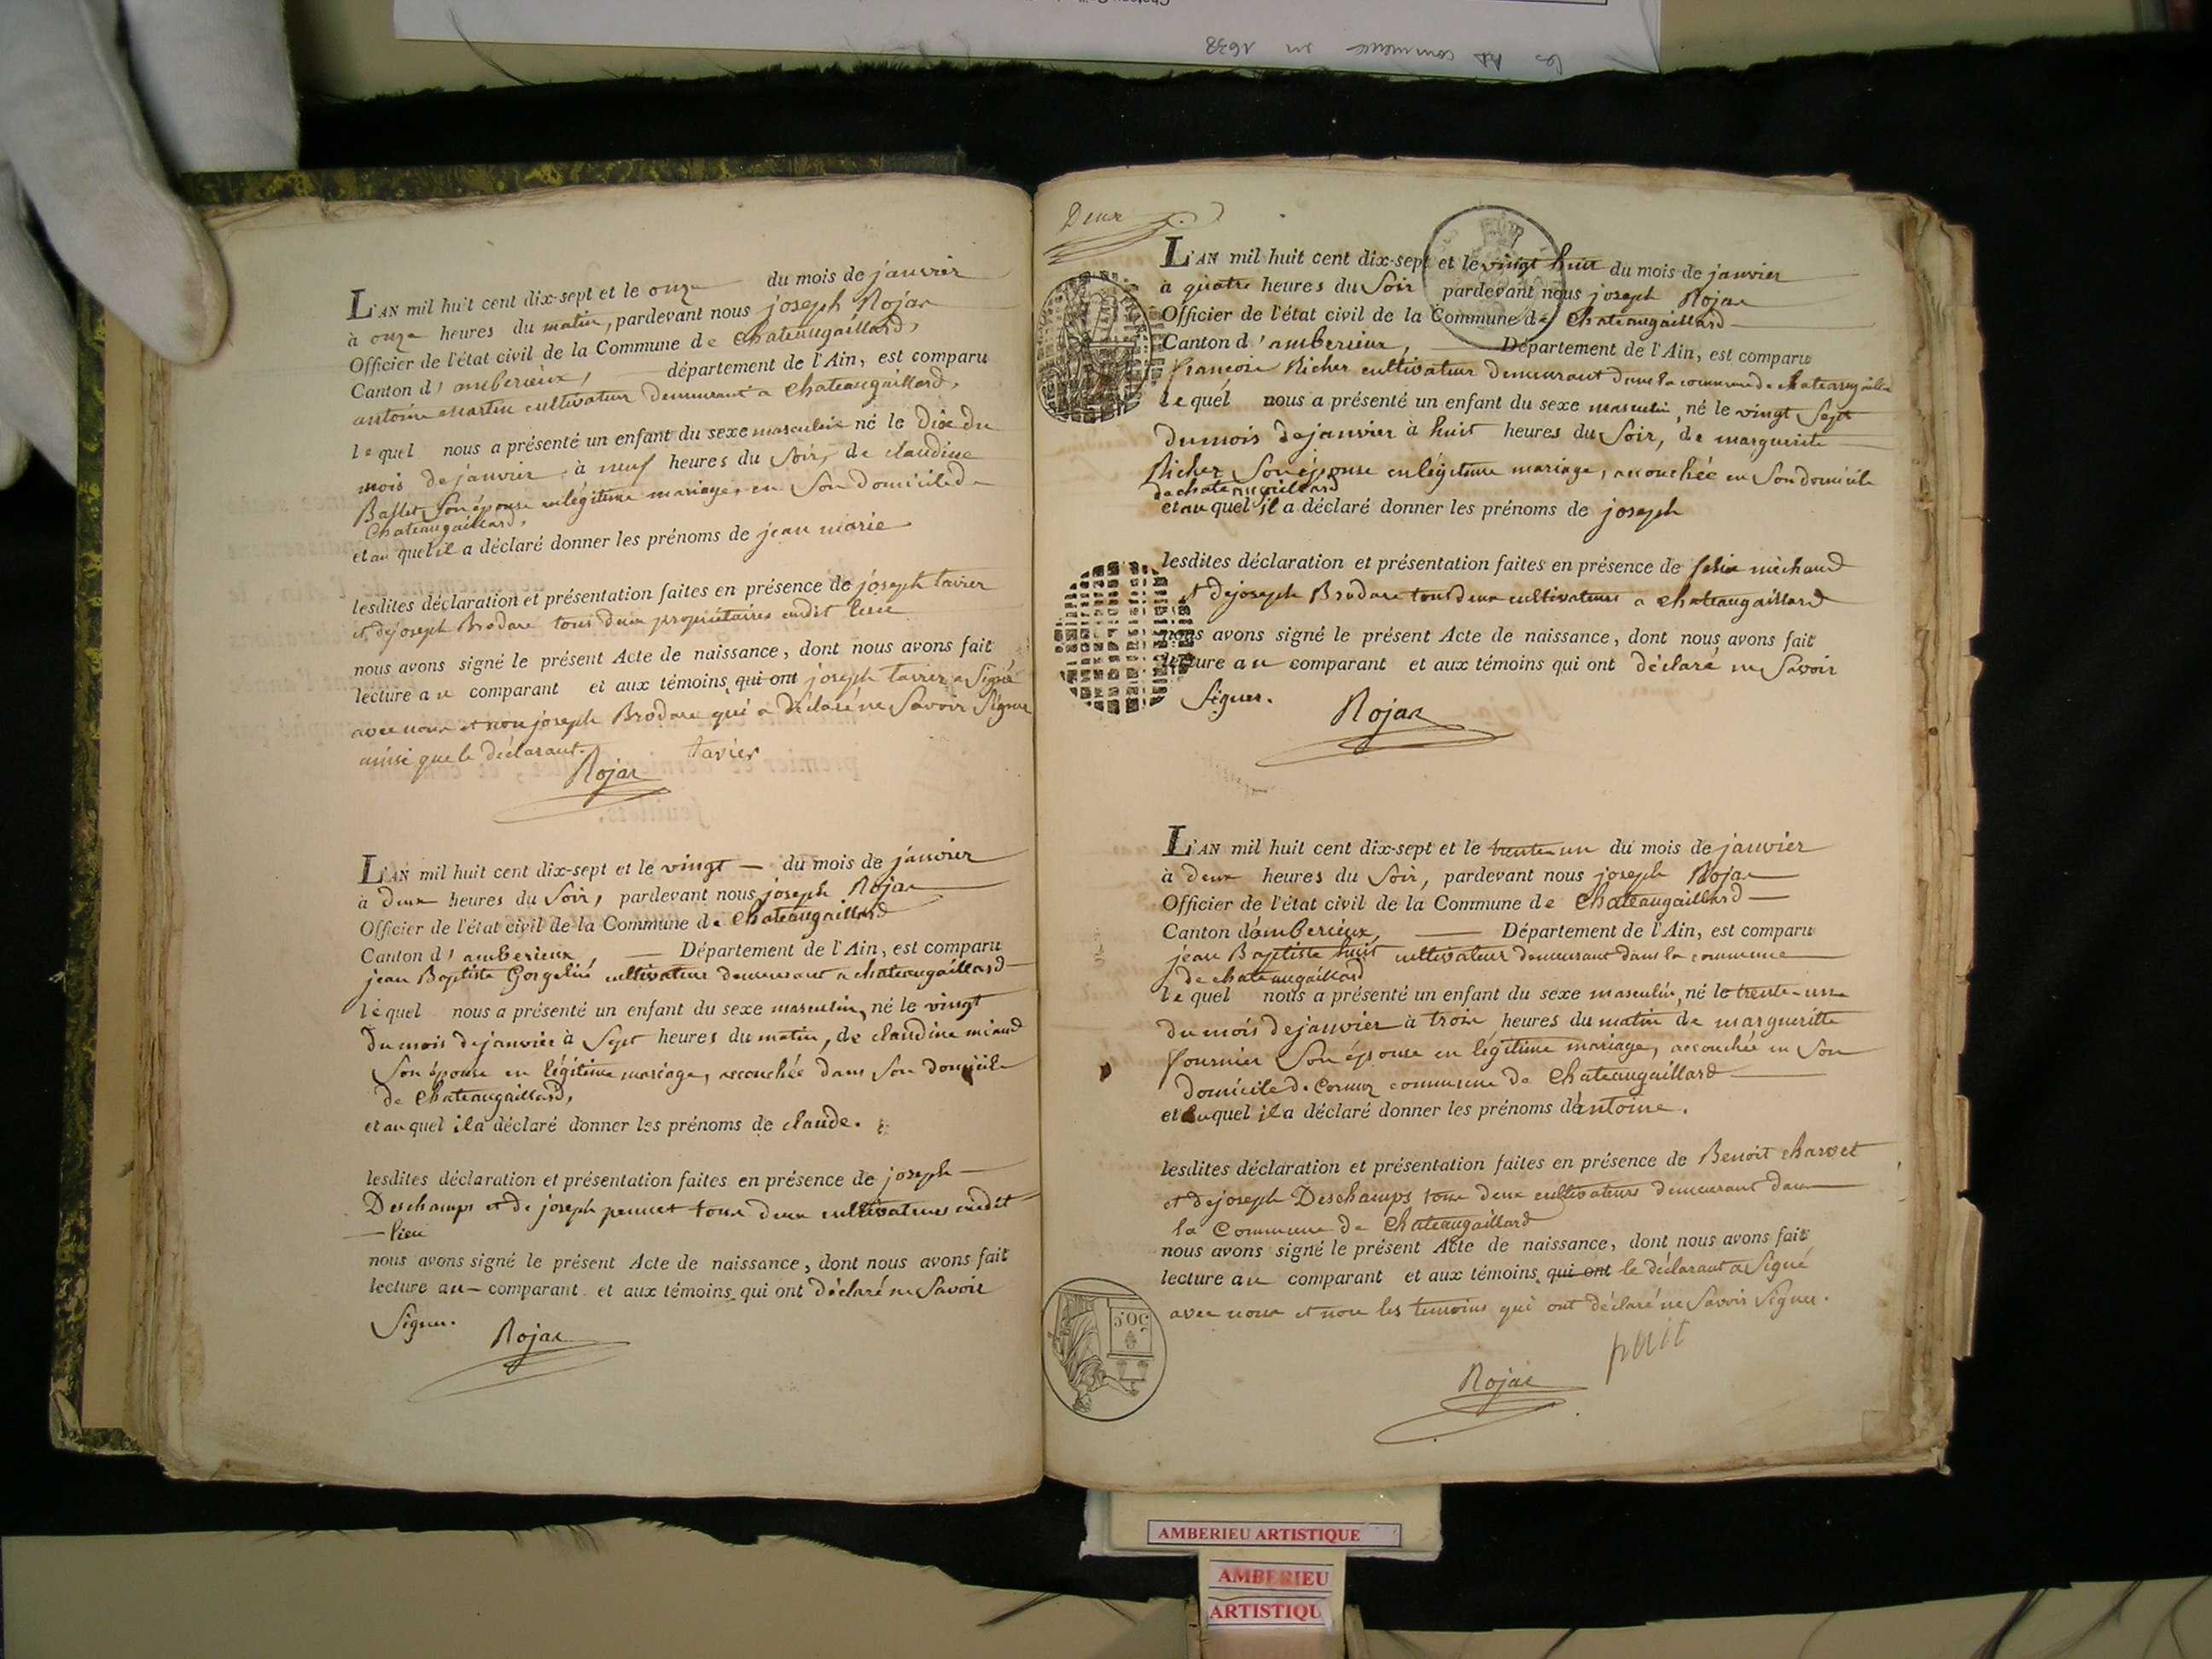 les commence en 1638
L'AN mil huit cent dix-sept et le onze du mois de janvier
à onze heures du matin, pardevant nous joseph Rojar
Officier de l'état civil de la Commune de Chateaugaillard,
Canton d'amberieux, département de l'Ain, est comparu
antoine Martin cultivateur demeurant a chateaugaillard,
lequel nous a présenté un enfant du sexe masculin né le Dix du
mois de janvier à neuf heures du Soir, de claudine
Ballet Son épouse en légitime mariage, en Son domicile de
Chateaugaillard,
et au quel il a déclaré donner les prénoms de jean marie
lesdites déclaration et présentation faites en présence de joseph tavier
et de joseph Brodare tous deux propriétaires audit lieu
nous avons signé le présent Acte de naissance, dont nous avons fait
lecture au comparant et aux témoins qui ont joseph tavier a Signé
avec nous et non joseph Brodare qui a déclaré ne Savoir Signer
ainsi que le déclarant.
tavier
Rojar
L'AN mil huit cent dix-sept et le vingt du mois de janvier
à deux heures du Soir, pardevant nous joseph Rojar
Officier de l'état civil de la Commune de Chateaugaillard
Canton d'amberieux Département de l'Ain, est comparu
jean Baptiste Gorgelin cultivateur demeurant a chateaugaillard
lequel nous a présenté un enfant du sexe masculin, né le vingt
Du mois de janvier à Sept heures du matin, de claudine miaud
Son épouse en légitime mariage, accouchée dans Son domicile
de Chateaugaillard,
et au quel il a déclaré donner les prénoms de claude.
lesdites déclaration et présentation faites en présence de joseph
Deschamps et de joseph pennet tous deux cultivateurs audit
lieu
nous avons signé le présent Acte de naissance, dont nous avons fait
lecture au comparant et aux témoins qui ont déclaré ne Savoir
Signer.
Rojar
Deux
L'AN mil huit cent dix-sept et le vingt huit du mois de janvier
à quatre heures du Soir pardevant nous joseph Rojar
Officier de l'état civil de la Commune de Chateaugaillard
Canton d'amberieux, Département de l'Ain, est comparu
françois Richer cultivateur demeurant dans la commune de chateaugaillard
le quel nous a présenté un enfant du sexe masculin, né le vingt Sept
du mois de janvier à huit heures du Soir, de marguerite
Richer Son épouse en légitime mariage, accouchée en Son domicile
de chateaugaillard
et au quel il a déclaré donner les prénoms de joseph
lesdites déclaration et présentation faites en présence de felix michaud
et de joseph Brodare tous deux cultivateurs a chateaugaillard
nous avons signé le présent Acte de naissance, dont nous avons fait
lecture au comparant et aux témoins qui ont déclaré ne Savoir
Signer.
Rojar
L'AN mil huit cent dix-sept et le trente un du mois de janvier
à deux heures du Soir, pardevant nous joseph Rojar
Officier de l'état civil de la Commune de Chateaugaillard
Canton d'amberieux, Département de l'Ain, est comparu
jean Baptiste cultivateur demeurant dans la commune
de chateaugaillard
le quel nous a présenté un enfant du sexe masculin, né le trente-un
du mois de janvier à trois heures du matin de margueritte
fournier Son épouse en légitime mariage, accouchée en Son
domicile de Cormoz commune de Chateaugaillard
et auquel il a déclaré donner les prénoms d'antoine.
lesdites déclaration et présentation faites en présence de Benoit charvet
et de joseph Deschamps tous deux cultivateurs demeurant dans
la Commune de Chateaugaillard
nous avons signé le présent Acte de naissance, dont nous avons fait
lecture au comparant et aux témoins qui ont le déclarant a Signé
avec nous et non les temoins qui ont déclaré ne Savoir Signer.
Rojar
50.C
AMBERIEU ARTISTIQUE
AMBERIEU
ARTISTIQU